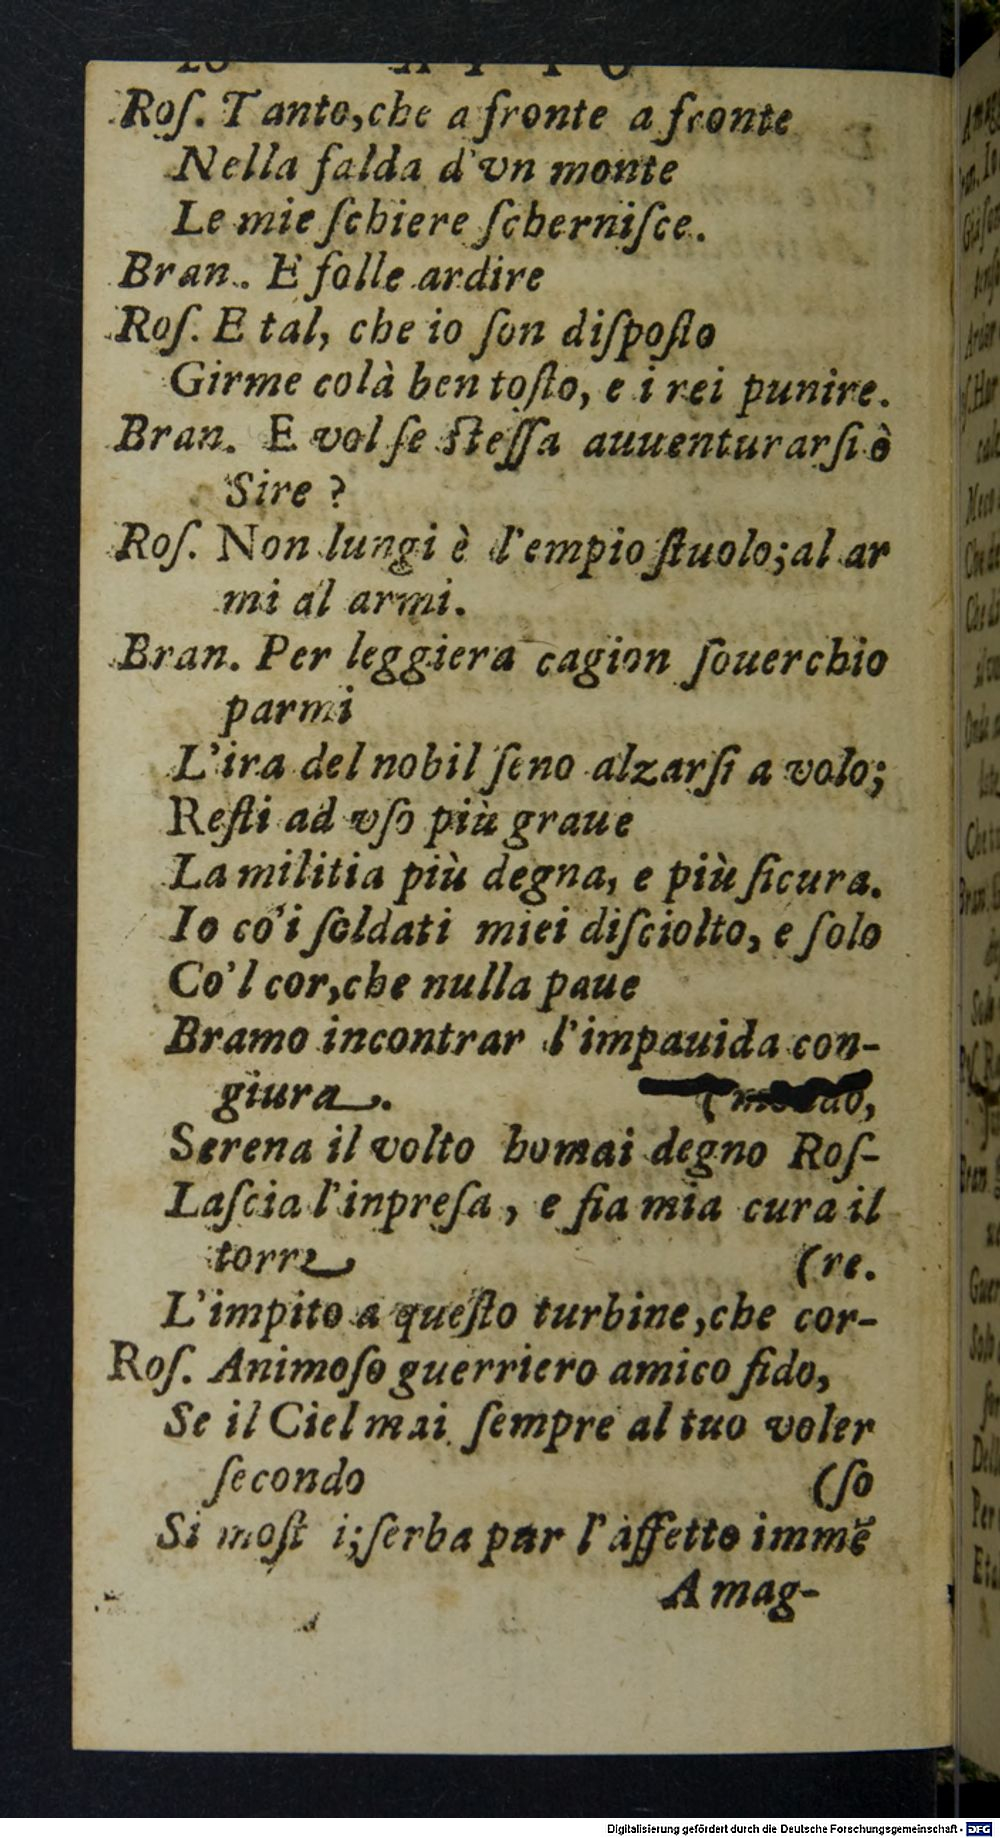 Roſ. Tanto,che a fronte a fronte
Nella falda d'vn monte
Le mie ſchiere ſcherniſce.
Bran. E folle ardire
Roſ. E tal, che io ſon diſpoſto
Girme colà ben toſto, e i rei punire.
Bran. E vol ſe ſteſſa auuenturarſi ò
Sire ?
Roſ. Non lungi è l'empio ſtuolo;al ar
mi al armi.
Bran. Per leggiera cagion ſouerchio
parmi
L'ira del nobil ſeno alzarſi a volo;
Reſti ad vſo più graue
La militia più degna, e più ſicura.
Io co'i ſoldati miei diſciolto, e ſolo
Co'l cor,che nulla paue
Bramo incontrar l'impauida con-
giura.
Serena il volto homai degno Roſ-
Laſcia l'inpreſa, e fia mia cura il
torre (re.
L'impito a queſto turbine,che cor-
Roſ. Animoſo guerriero amico fido,
Se il Ciel mai ſempre al tuo voler
ſecondo (ſo
Si moſt i;ſerba pur l'affetto immẽ
A mag-
Digitalisierung gefördert durch die Deutsche Forschungsgemeinschaft - DFG